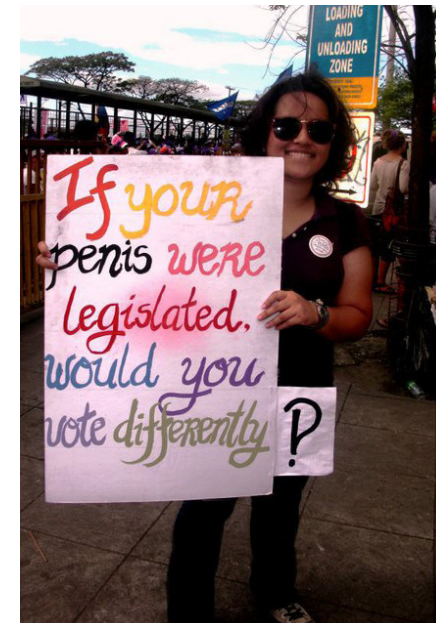 LOADING
AND
UNLOADING
ZONE
If your
penis were
legislated,
would you
vote differently
?